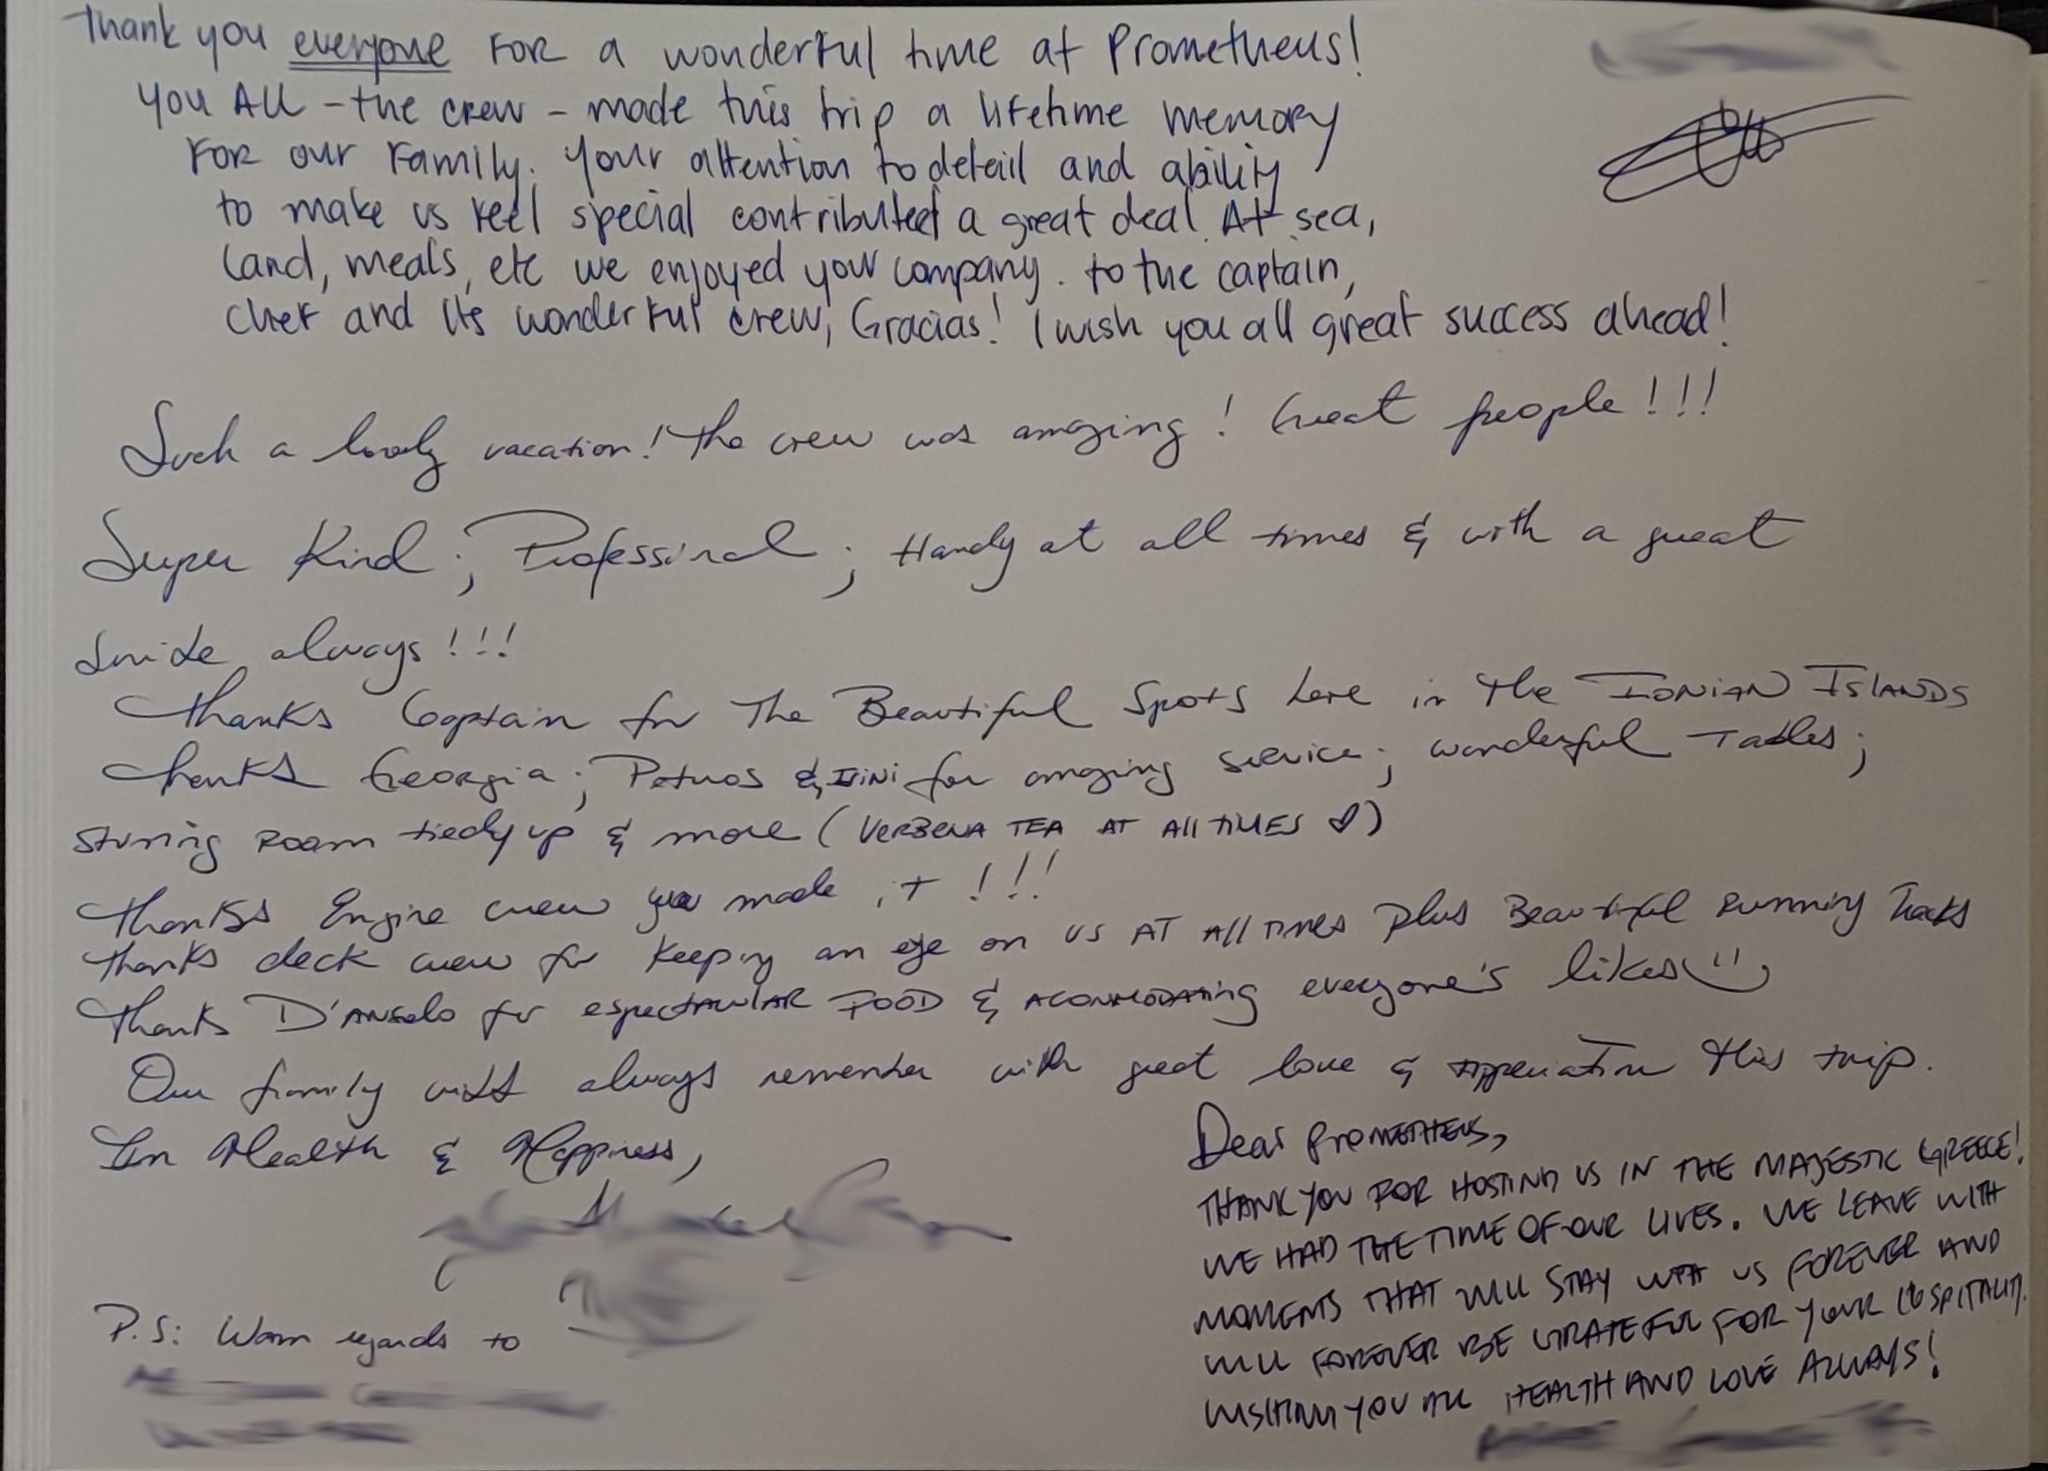 Thank you everyone for a wonderful time at Prometheus!
You All - the crew - made this trip a lifetime memory
for our family. Your attention to detail and ability
to make us feel special contributed a great deal. At sea,
land, meals, etc we enjoyed your company. to the captain,
chef and its wonderful crew, Gracias! I wish you all great success ahead!
Such a lovely vacation! The crew was amazing! Great people!!!
Super Kind; Professinal; Handy at all times & with a great
smile always!!!
Thanks Captain for The Beautiful Spots here in The IONIAN ISLANDS
Thanks Georgia; Petros & Irini for amazing service; wonderful Tables;
room tiedy up & more (VERBENA TEA AT All TIMES ♡)
Thanks Engine crew you made it!!!
Thanks deck crew for keeping an eye on us AT All TIMES plus Beautiful Running Tracks
Thanks D'Angelo for espectacular FOOD & acommodating everyone's likes
Our family will always remember with great love & Appreciation This trip.
In Health & Happiness,
P.S: Warm regards to
Dear Prometheus,
THANK YOU FOR HOSTING US IN THE MAJESTIC GREECE!
WE HAD THE TIME OF OUR LIVES. WE LEAVE WITH
MOMENTS THAT WILL STAY WITH US FOREVER AND
WILL FOREVER BE GRATEFUL FOR YOUR HOSPITALITY.
WISHING YOU ALL HEALTH AND LOVE ALWAYS!